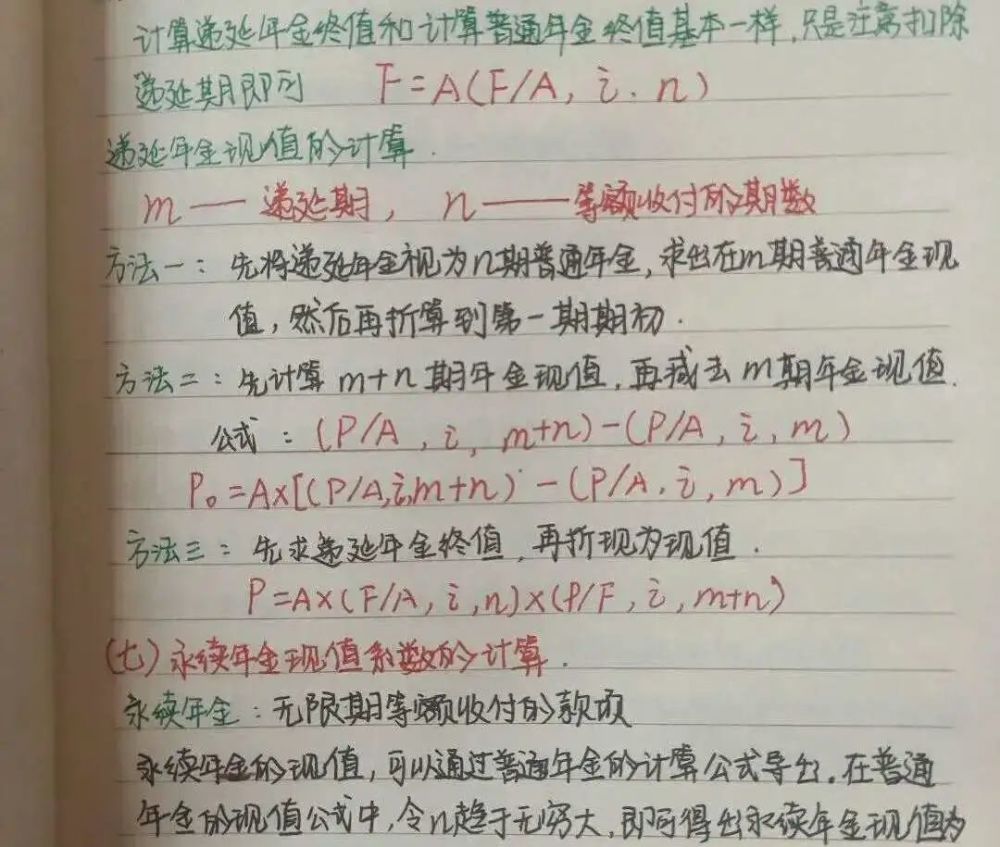 计算递延年金终值和计算普通年金终值基本一样,只是注意扣除
递延期即可 F=A(F/A, i, n)
递延年金现值的计算.
m — 递延期, n —— 等额收付的期数
方法一: 先将递延年金视为n期普通年金,求出在m期普通年金现
值,然后再折算到第一期期初.
方法二: 先计算 m+n 期年金现值,再减去 m期年金现值.
公式: (P/A, i, m+n)-(P/A, i, m)
P₀=A×[(P/A,i,m+n)-(P/A, i, m)]
方法三: 先求递延年金终值,再折现为现值.
P=A×(F/A, i,n)×(P/F, i, m+n)
(七)永续年金现值系数的计算.
永续年金:无限期等额收付的款项
永续年金的现值,可以通过普通年金的计算公式导出.在普通
年金的现值公式中,令n趋于无穷大,即可得出永续年金现值为